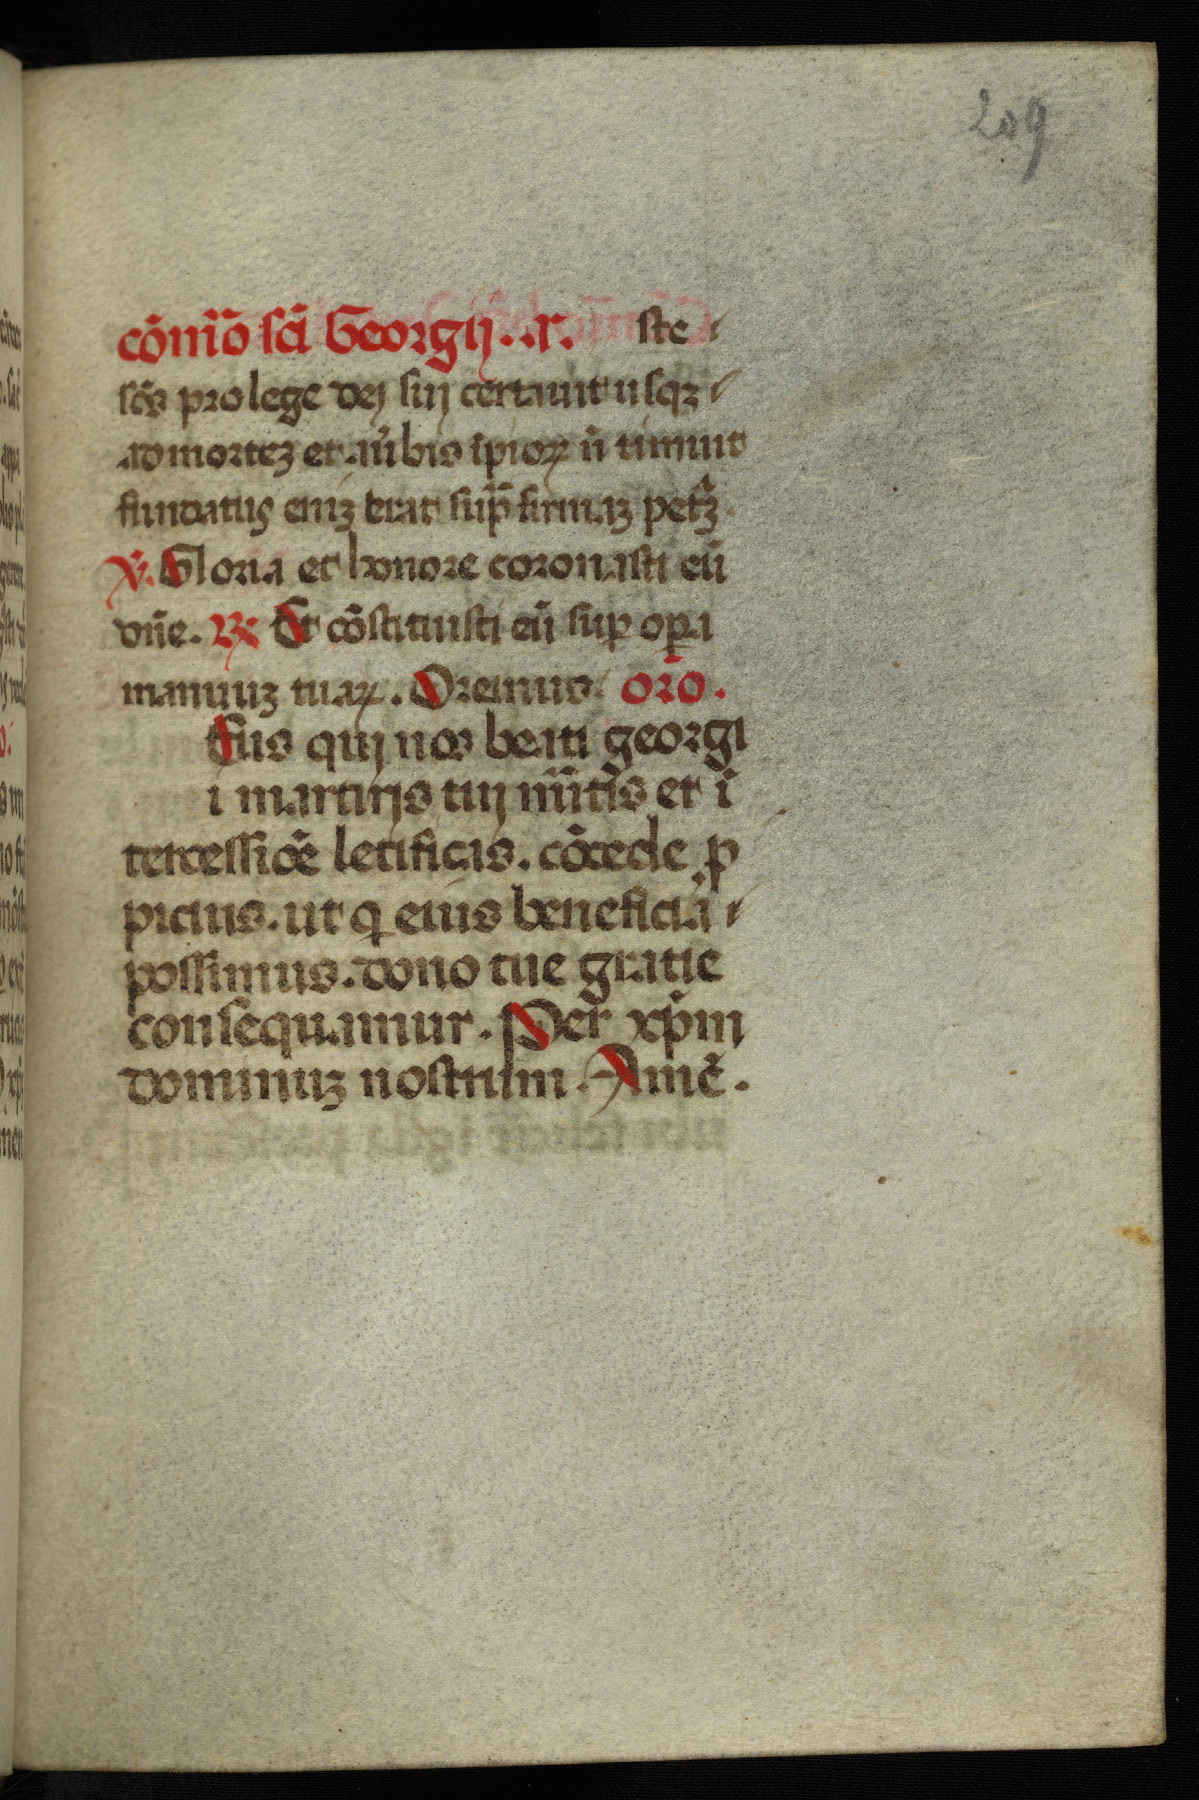 209
cōmīō sc̄i Georgij..r. ste
sc̄s pro lege dej suj certauit usqꝫ
ad morteꝫ et auībis īpioꝝ nō timuit
fundatus eniꝫ erat sup̄ firmaꝫ petᵃꝫ
℣. Gloria et honore coronasti eū
dn̄e. ℟ Et cōstituisti eū sup opa
manuuꝫ tuaꝝ. Oremus. orō.
Eus quj nos beati georgi
i martirjs tuj mītis et ī
tercessiōe letificas. cōcede ꝓ
picius. ut q eius beneficia
possimus. dono tue gratie
consequamur. Per xp̄m
dominuꝫ nostrum. Amē.